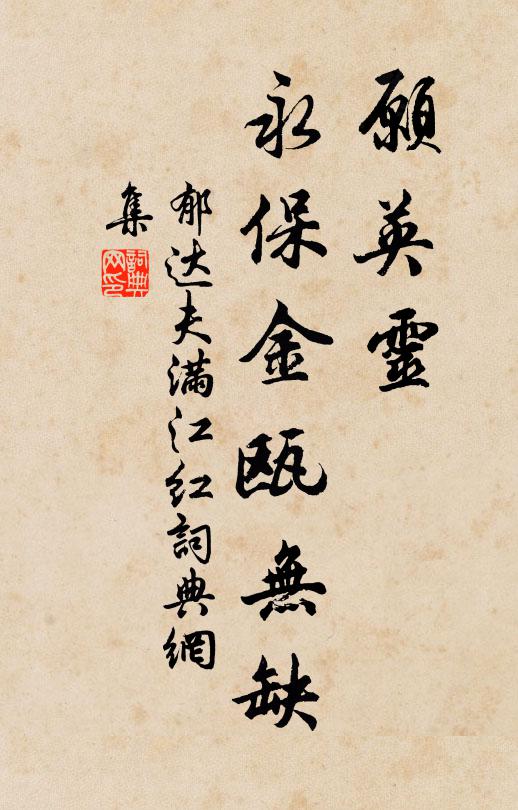 願英靈
永保金瓯無缺
郁达夫满江红詞典網
集
詞典网印